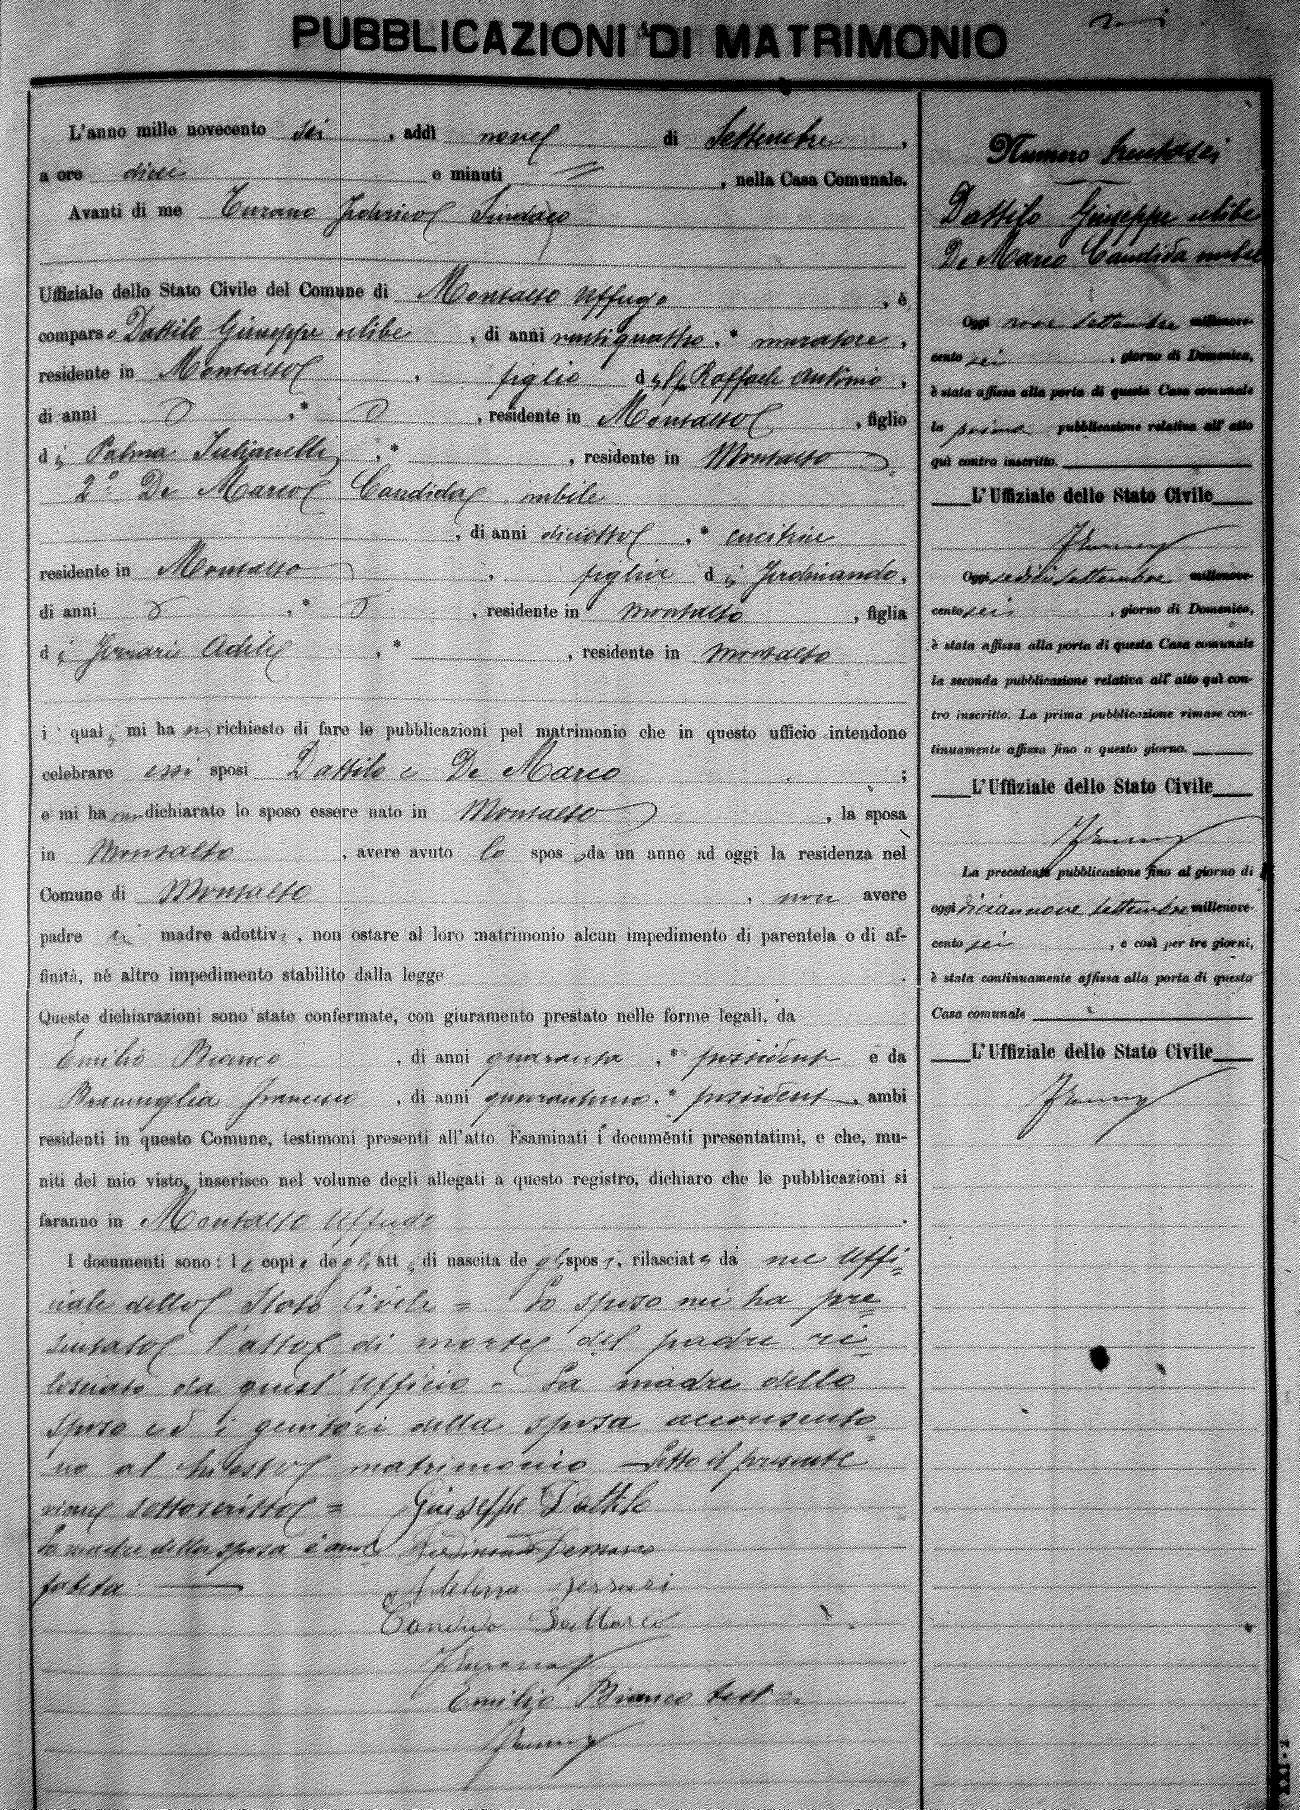 PUBBLICAZIONI DI MATRIMONIO
L'anno mille novecento sei, addì nove di Settembre,
a ore dieci e minuti =, nella Casa Comunale.
Avanti di me Turano Federico Sindaco
Uffiziale dello Stato Civile del Comune di Montalto Uffugo, è
comparso Dattilo Giuseppe celibe, di anni ventiquattro, * muratore,
residente in Montalto, figlio di fu Raffaele Antonio,
di anni, * , residente in Montalto, figlio
di Palma Iulianelli, * , residente in Montalto
2° De Marco Candida nubile
, di anni diciotto, * cucitrice
residente in Montalto, figlia di Ferdinando,
di anni, * , residente in Montalto, figlia
di Ferrari Adele, * , residente in Montalto
i quali mi hanno richiesto di fare le pubblicazioni pel matrimonio che in questo ufficio intendono
celebrare essi sposi Dattilo e De Marco ;
e mi hanno dichiarato lo sposo essere nato in Montalto, la sposa
in Montalto, avere avuto lo sposo da un anno ad oggi la residenza nel
Comune di Montalto, non avere
padre madre adottiv, non ostare al loro matrimonio alcun impedimento di parentela o di af-
finità, né altro impedimento stabilito dalla legge .
Queste dichiarazioni sono state confermate, con giuramento prestato nelle forme legali, da
Emilio Bianco, di anni quaranta, * possidente e da
Francesco, di anni quarantuno, * possidente, ambi
residenti in questo Comune, testimoni presenti all'atto. Esaminati i documenti presentatimi, e che, mu-
niti del mio visto, inserisco nel volume degli allegati a questo registro, dichiaro che le pubblicazioni si
faranno in Montalto Uffugo.
I documenti sono: le copie degli atti di nascita degli sposi, rilasciate da me Uffi-
ciale dello Stato Civile = Lo sposo mi ha pre-
sentato l'atto di morte del padre ri-
lasciato da quest'Ufficio - La madre dello
sposo ed i genitori della sposa acconsento-
no al chiesto matrimonio — Letto il presente
viene sottoscritto = Giuseppe Dattilo
La madre della sposa è anal- Ferdinando Demarco
fabeta — Ferrari
Candida De Marco
FTurano
Emilio Bianco test
FTurano
Numero trentasei
Dattilo Giuseppe celibe
De Marco Candida nubile
Oggi nove Settembre millenove-
cento sei, giorno di Domenica,
è stata affissa alla porta di questa Casa comunale
la prima pubblicazione relativa all'atto
quì contro inscritto.
L'Uffiziale dello Stato Civile
FTurano
Oggi sedici Settembre millenove-
cento sei, giorno di Domenica,
è stata affissa alla porta di questa Casa comunale
la seconda pubblicazione relativa all'atto quì con-
tro inscritto. La prima pubblicazione rimase con-
tinuamente affissa fino a questo giorno.
L'Uffiziale dello Stato Civile
FTurano
La precedente pubblicazione fino al giorno di
oggi diciannove Settembre millenove-
cento sei, e così per tre giorni,
è stata continuamente affissa alla porta di questa
Casa comunale
L'Uffiziale dello Stato Civile
FTurano